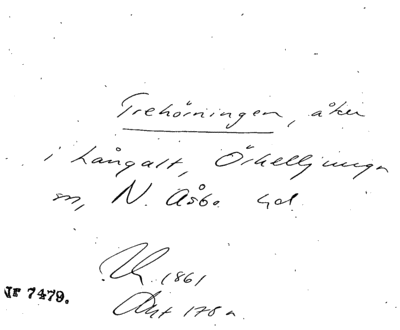 Trehörningen, åker
i Långalt, Örkelljunga
sn, N. Åsbo hd.
1861
Akt 178 a.
Jr 7479.